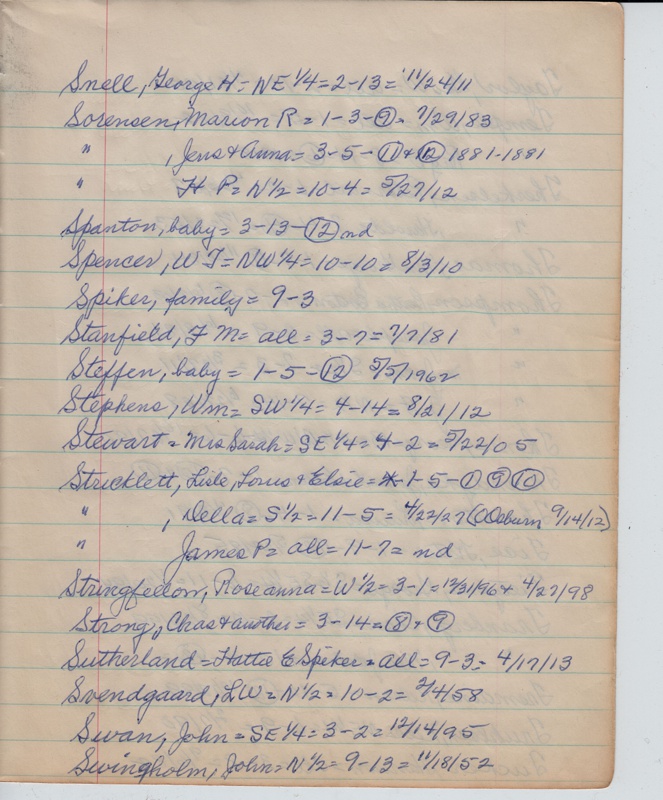 Snell, George H = NE 1/4 = 2-13 = 11/24/11
Sorensen, Marion R = 1-3-⑨ = 7/29/83
" , Jens & Anna = 3-5-⑪ & ⑫ 1881-1881
" H P = N 1/2 = 10-4 = 5/27/12
Spanton, baby = 3-13-⑫ nd
Spencer, W T = NW 1/4 = 10-10 = 8/3/10
Spiker, family = 9-3
Stanfield, F M = all = 3-7 = 7/7/81
Steffen, baby = 1-5-⑫ 5/5/1962
Stephens, Wm = SW 1/4 = 4-14 = 8/21/12
Stewart = Mrs Sarah = SE 1/4 = 4-2 = 5/22/05
Stricklett, Lisle, Lorus & Elsie = 1-5-① ⑨ ⑩
" , Della = S 1/2 = 11-5 = 4/22/27 (O Osburn 9/14/12)
" James P = all = 11-7 = nd
Stringfellow, Roseanna = W 1/2 = 3-1 = 12/31/96 & 4/27/98
Strong, Chas & another = 3-14 = ⑧ & ⑨
Sutherland = Hattie E Spiker = all = 9-3 = 4/17/13
Svendgaard, LW = N 1/2 = 10-2 = 2/4/58
Swan, John = SE 1/4 = 3-2 = 12/14/95
Swingholm, John = N 1/2 = 9-13 = 11/18/52